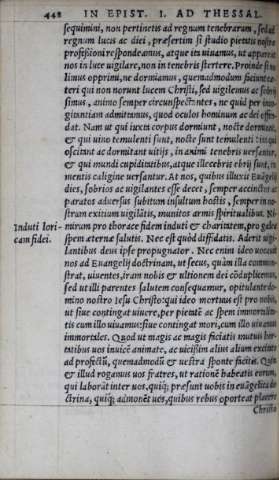 442 IN EPIST. I. AD THESSAL.
sequimini, non pertinetis ad regnum tenebrarum, sed ad
regnum lucis ac diei, præsertim si studio pietatis nostræ
professioni respondeamus, atque ita uiuamus, ut appareat
nos in luce uigilare, non in tenebris stertere. Proinde si no
limus opprimi, ne dormiamus, quemadmodum faciunt cæ
teri qui non norunt lucem Christi, sed uigilemus ac sobrij
simus, animo semper circunspectantes, ne quid per incogitantiam admittamus, quod oculos hominum ac dei offendat.
Nam ut qui iuxta corpus dormiunt, nocte dormiunt,
& qui uino temulenti sunt, nocte sunt temulenti: ita qui
oscitant ac dormitant uitijs, in animi tenebris uersantur,
& qui mundi cupiditatibus, atque illecebris ebrij sunt, in
mentis caligine uersantur. At nos, quibus illuxit Euãgelij
dies, sobrios ac uigilantes esse decet, semper accinctos ac
paratos aduersus subitum insultum hostis, semper in nostram
exitium uigilãtis, munitos armis spiritualibus. Nimirum
Induti lori-
cam fidei.
pro thorace fidem induti & charitatem, pro galea
spem æternæ salutis. Nec est quòd diffidatis. Aderit uigilantibus
deus ipse propugnator. Nec enim ideo uocauit
nos ad Euangelij doctrinam, ut secus, quàm illa commonstrat,
uiuentes, iram nobis & ultionem dei cõduplicemus,
sed ut illi parentes salutem consequamur, opitulante domino
nostro Iesu Christo: qui ideo mortuus est pro nobis,
ut siue contingat uiuere, per pietatẽ ac spem immortalitatis
cum illo uiuamus: siue contingat mori, cum illo uiuamus
immortales. Quod ut magis ac magis faciatis mutuis hortatibus
uos inuicẽ animate, ac uicissim alius alium excitate
ad profectũ, quemadmodũ & uestra sponte facitis. Quin
& illud rogamus uos fratres, ut rationẽ habeatis eorum,
qui laborãt inter uos, quiq; præsunt uobis in euãgelica doctrina,
quiq; admonẽt uos, quibus rebus oporteat placere
Christo